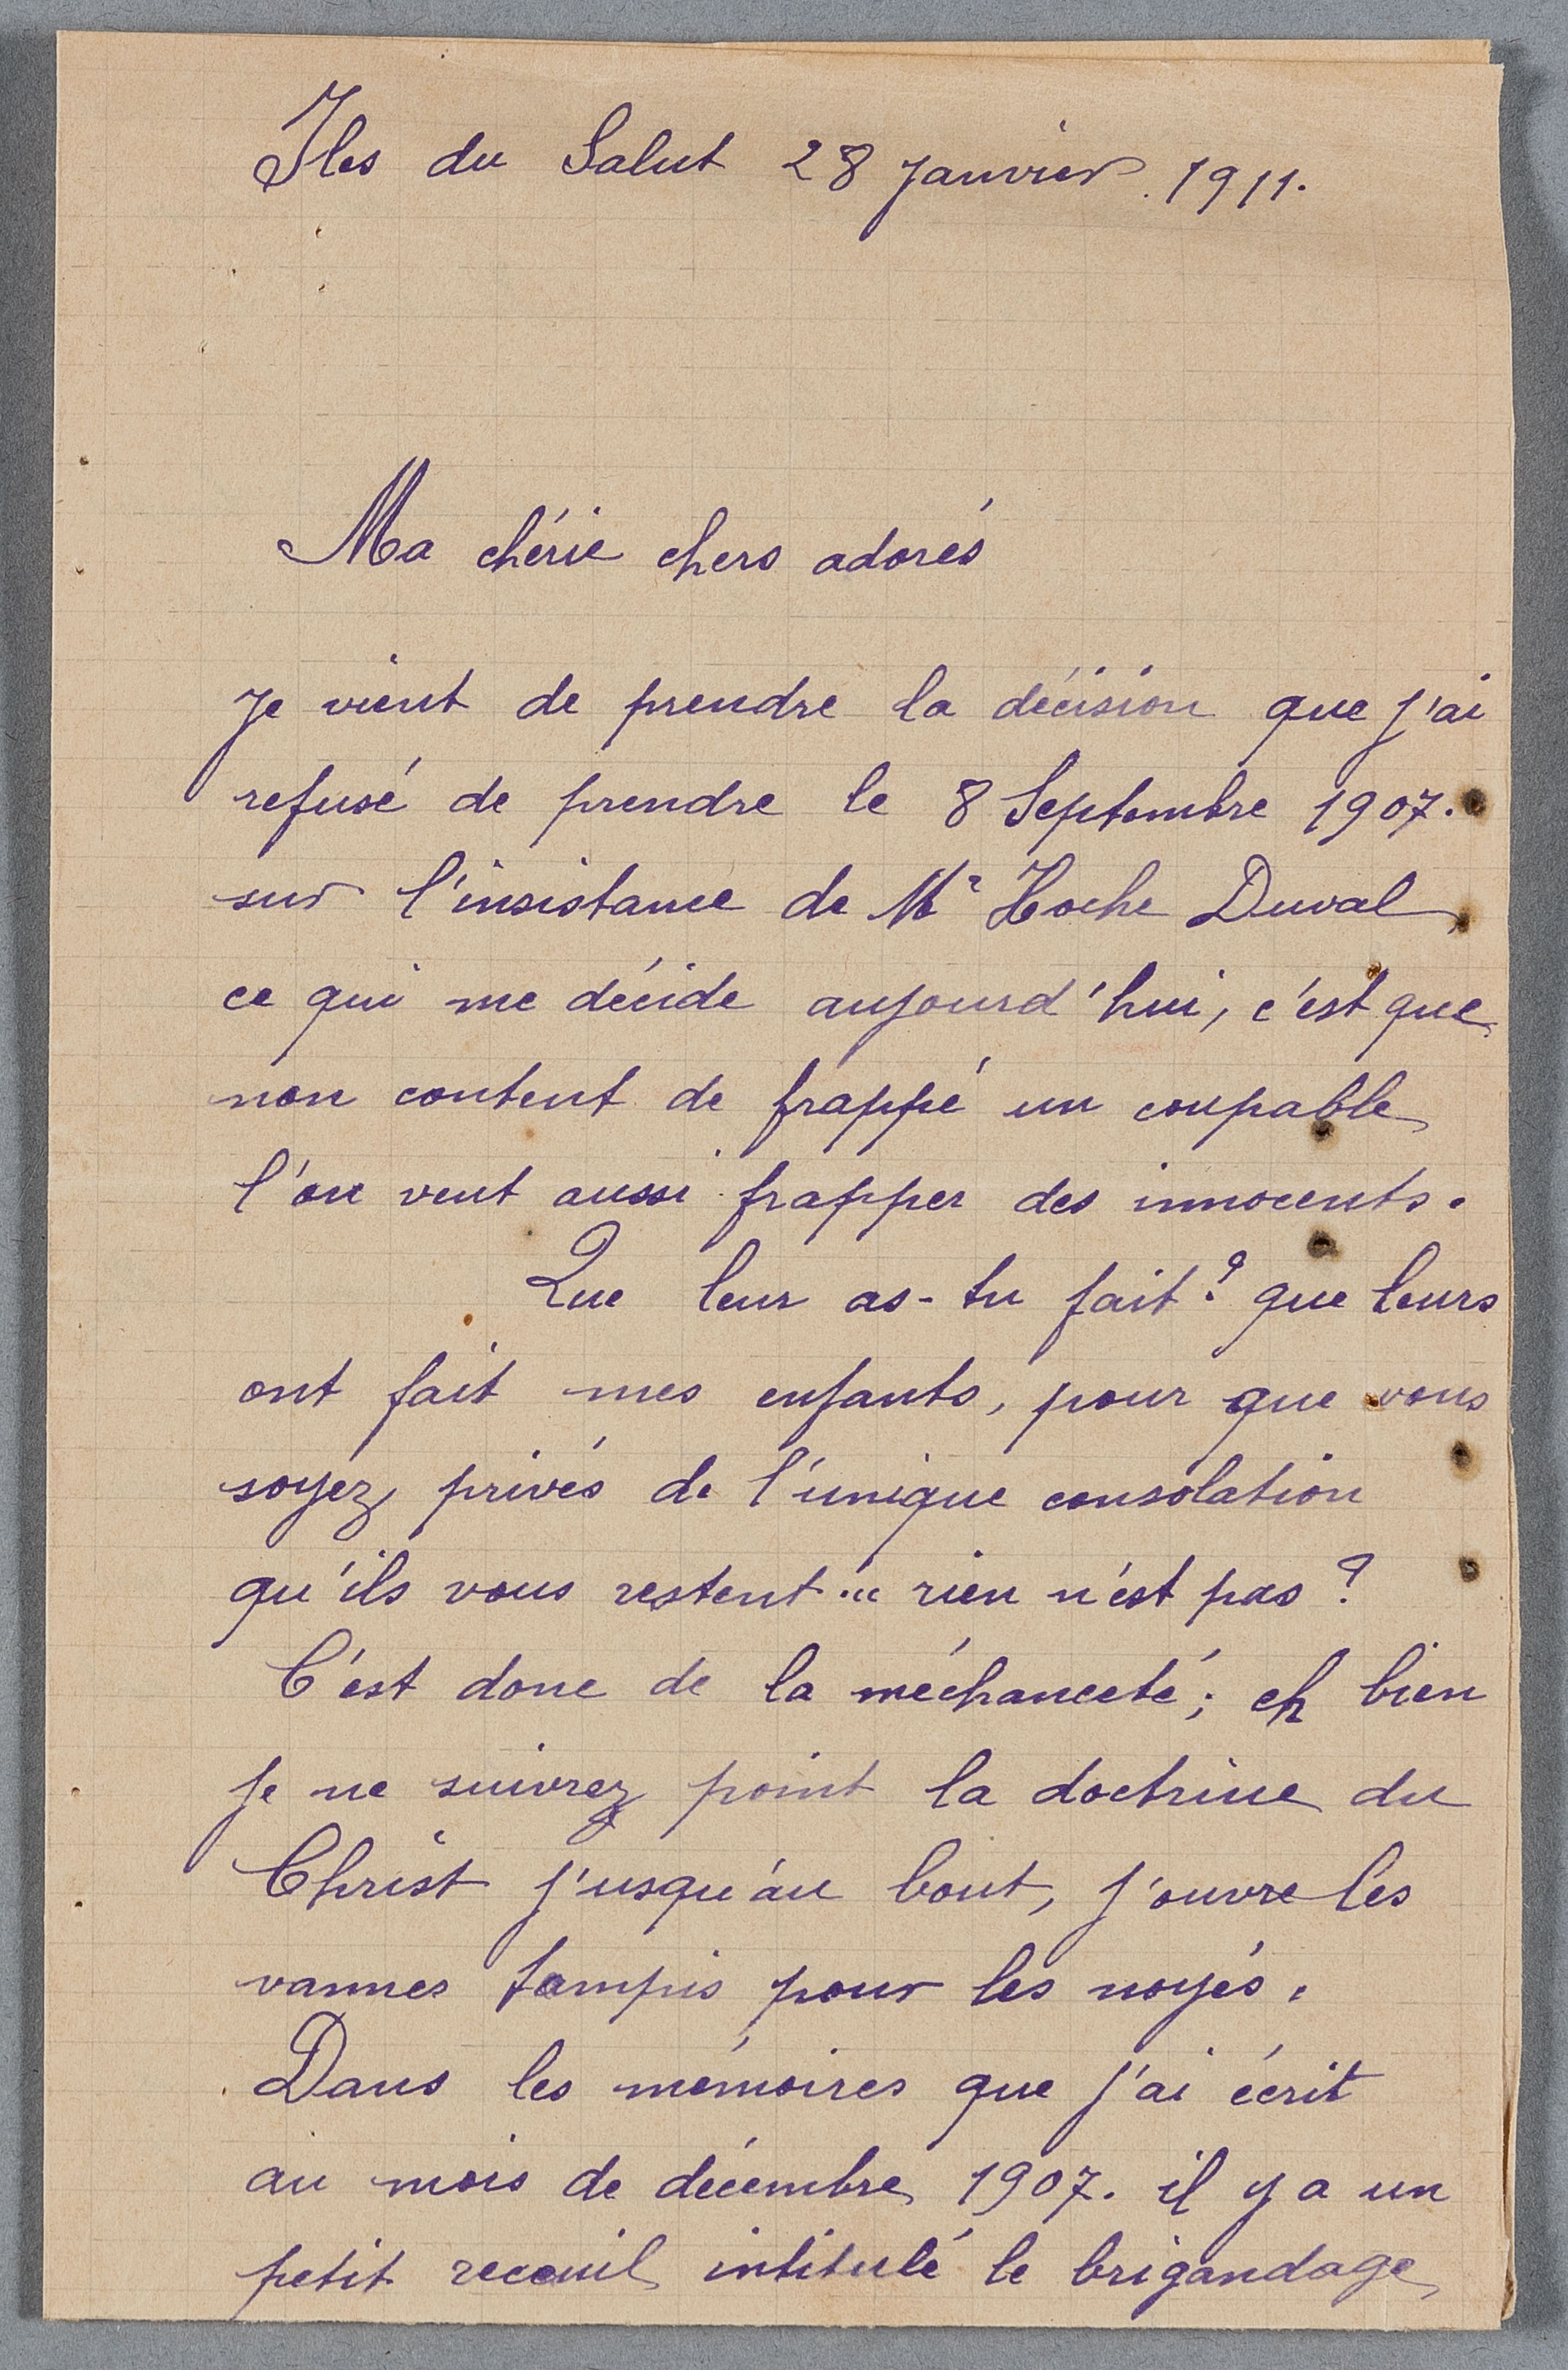 Iles du Salut 28 Janvier. 1911.
Ma chérie chers adorés
Je vient de prendre la décision que j'ai
refusé de prendre le 8 Septembre 1907.
sur l'insistance de Mr Hoche Duval,
ce qui me décide aujourd'hui, c'est que
non content de frappé un coupable
l'on veut aussi frapper des innocents.
Que leur as-tu fait? que leurs
ont fait mes enfants, pour que vous
soyez privés de l'unique consolation
qu'ils vous restent " rien n'est pas ?
C'est donc de la méchanceté; eh bien
je ne suivrez point la doctrine du
Christ j'usqu'au bout, j'ouvre les
vannes tampis pour les noyés.
Dans les mémoires que j'ai écrit
au mois de décembre 1907. il y a un
petit receuil intitulé le brigandage